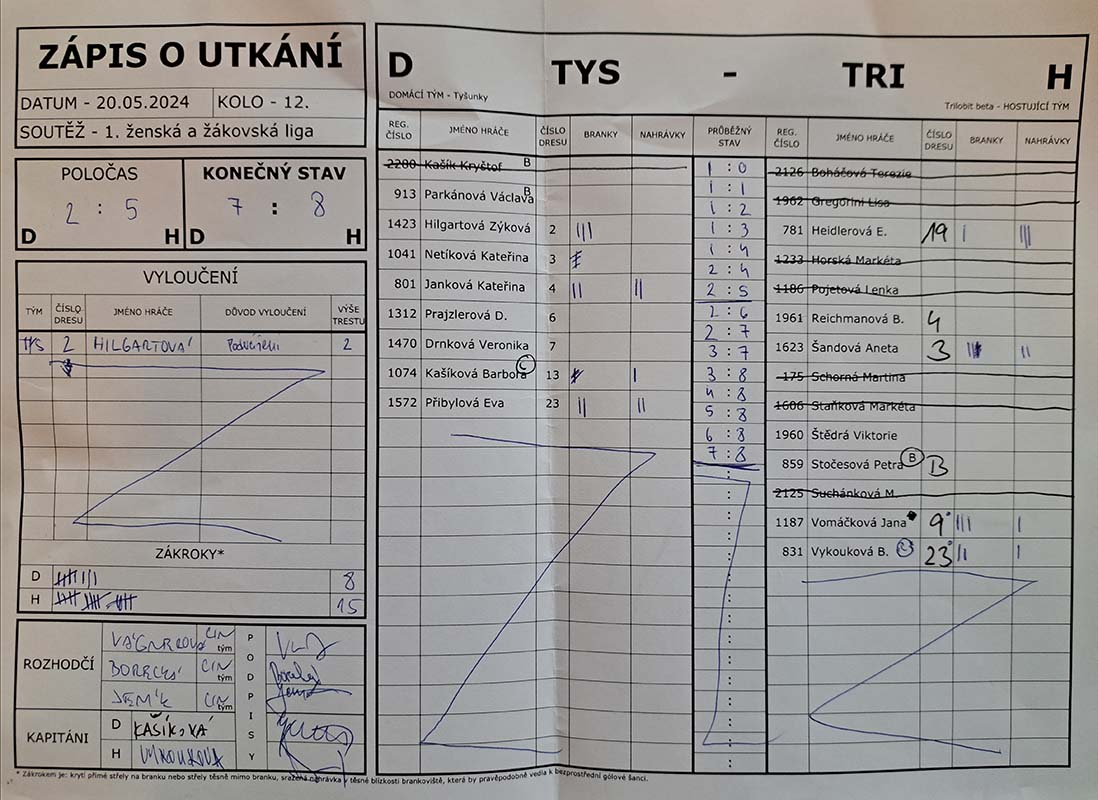 ZÁPIS O UTKÁNÍ
DATUM - 20.05.2024 KOLO - 12.
SOUTĚŽ - 1. ženská a žákovská liga
POLOČAS KONEČNÝ STAV
2 : 5 7 : 8
D H D H
VYLOUČENÍ
TÝM ČÍSLO DRESU JMÉNO HRÁČE DŮVOD VYLOUČENÍ VÝŠE TRESTU
TYS 2 HILGARTOVÁ 2
ZÁKROKY*
D 8
H 15
ROZHODČÍ
VÁGNEROVÁ tým
tým
JEMÍK tým
PODPISY
KAPITÁNI
D KAŠÍKOVÁ
H VYKOUKOVÁ
D TYS - TRI H
DOMÁCÍ TÝM - Tyšunky Trilobit beta - HOSTUJÍCÍ TÝM
REG. ČÍSLO JMÉNO HRÁČE ČÍSLO DRESU BRANKY NAHRÁVKY PRŮBĚŽNÝ STAV REG. ČÍSLO JMÉNO HRÁČE ČÍSLO DRESU BRANKY NAHRÁVKY
2280 Kašík Kryštof B
913 Parkánová Václava B
1423 Hilgartová Zýková 2 |||
1041 Netíková Kateřina 3
801 Janková Kateřina 4 || ||
1312 Prajzlerová D. 6
1470 Drnková Veronika 7
1074 Kašíková Barbora C 13 |
1572 Přibylová Eva 23 || ||
1 : 0
1 : 1
1 : 2
1 : 3
1 : 4
2 : 4
2 : 5
2 : 6
2 : 7
3 : 7
3 : 8
4 : 8
5 : 8
6 : 8
7 : 8
2126 Boháčová Terezie
1962 Gregorini Lisa
781 Heidlerová E. 19 | |||
1233 Horská Markéta
1186 Pojetová Lenka
1961 Reichmanová B. 4
1623 Šandová Aneta 3 ||
175 Schorná Martina
1606 Staňková Markéta
1960 Štědrá Viktorie
859 Stočesová Petra B 13
2125 Suchánková M.
1187 Vomáčková Jana 9 ||| |
831 Vykouková B. C 23 || |
* Zákrokem je: krytí přímé střely na branku nebo střely těsně mimo branku, sražená nahrávka v těsné blízkosti brankoviště, která by pravěpodobně vedla k bezprostřední gólové šanci.